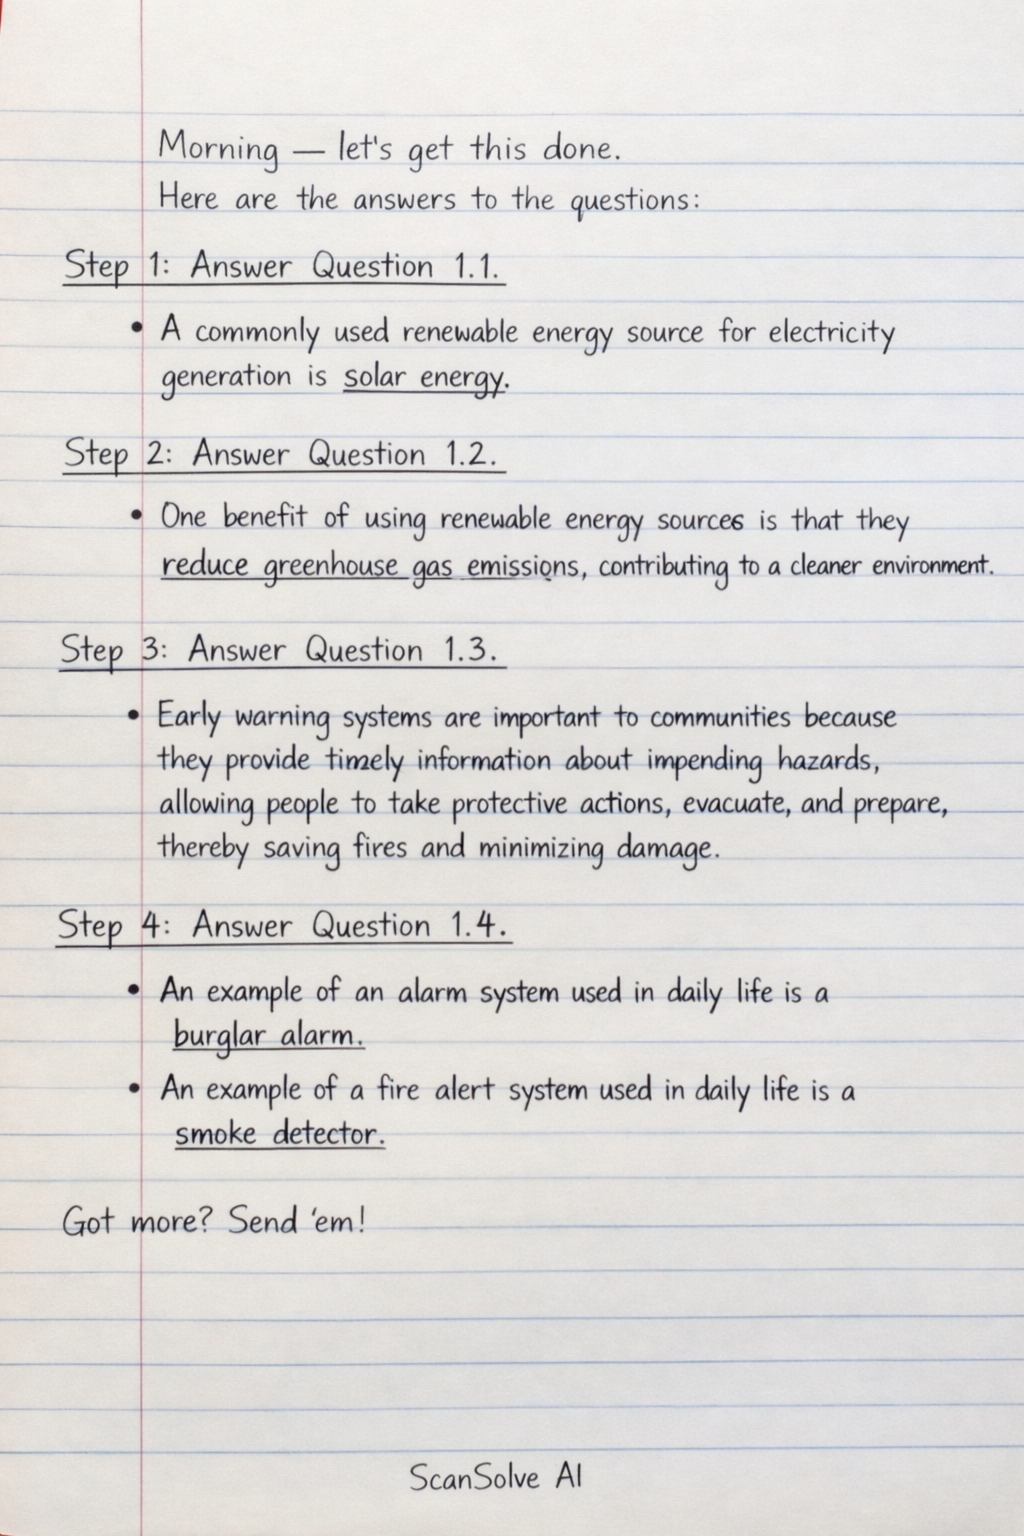 Morning — let's get this done.
Here are the answers to the questions:
Step 1: Answer Question 1.1.
• A commonly used renewable energy source for electricity
generation is solar energy.
Step 2: Answer Question 1.2.
• One benefit of using renewable energy sources is that they
reduce greenhouse gas emissions, contributing to a cleaner environment.
Step 3: Answer Question 1.3.
• Early warning systems are important to communities because
they provide timely information about impending hazards,
allowing people to take protective actions, evacuate, and prepare,
thereby saving fires and minimizing damage.
Step 4: Answer Question 1.4.
• An example of an alarm system used in daily life is a
burglar alarm.
• An example of a fire alert system used in daily life is a
smoke detector.
Got more? Send 'em!
ScanSolve AI